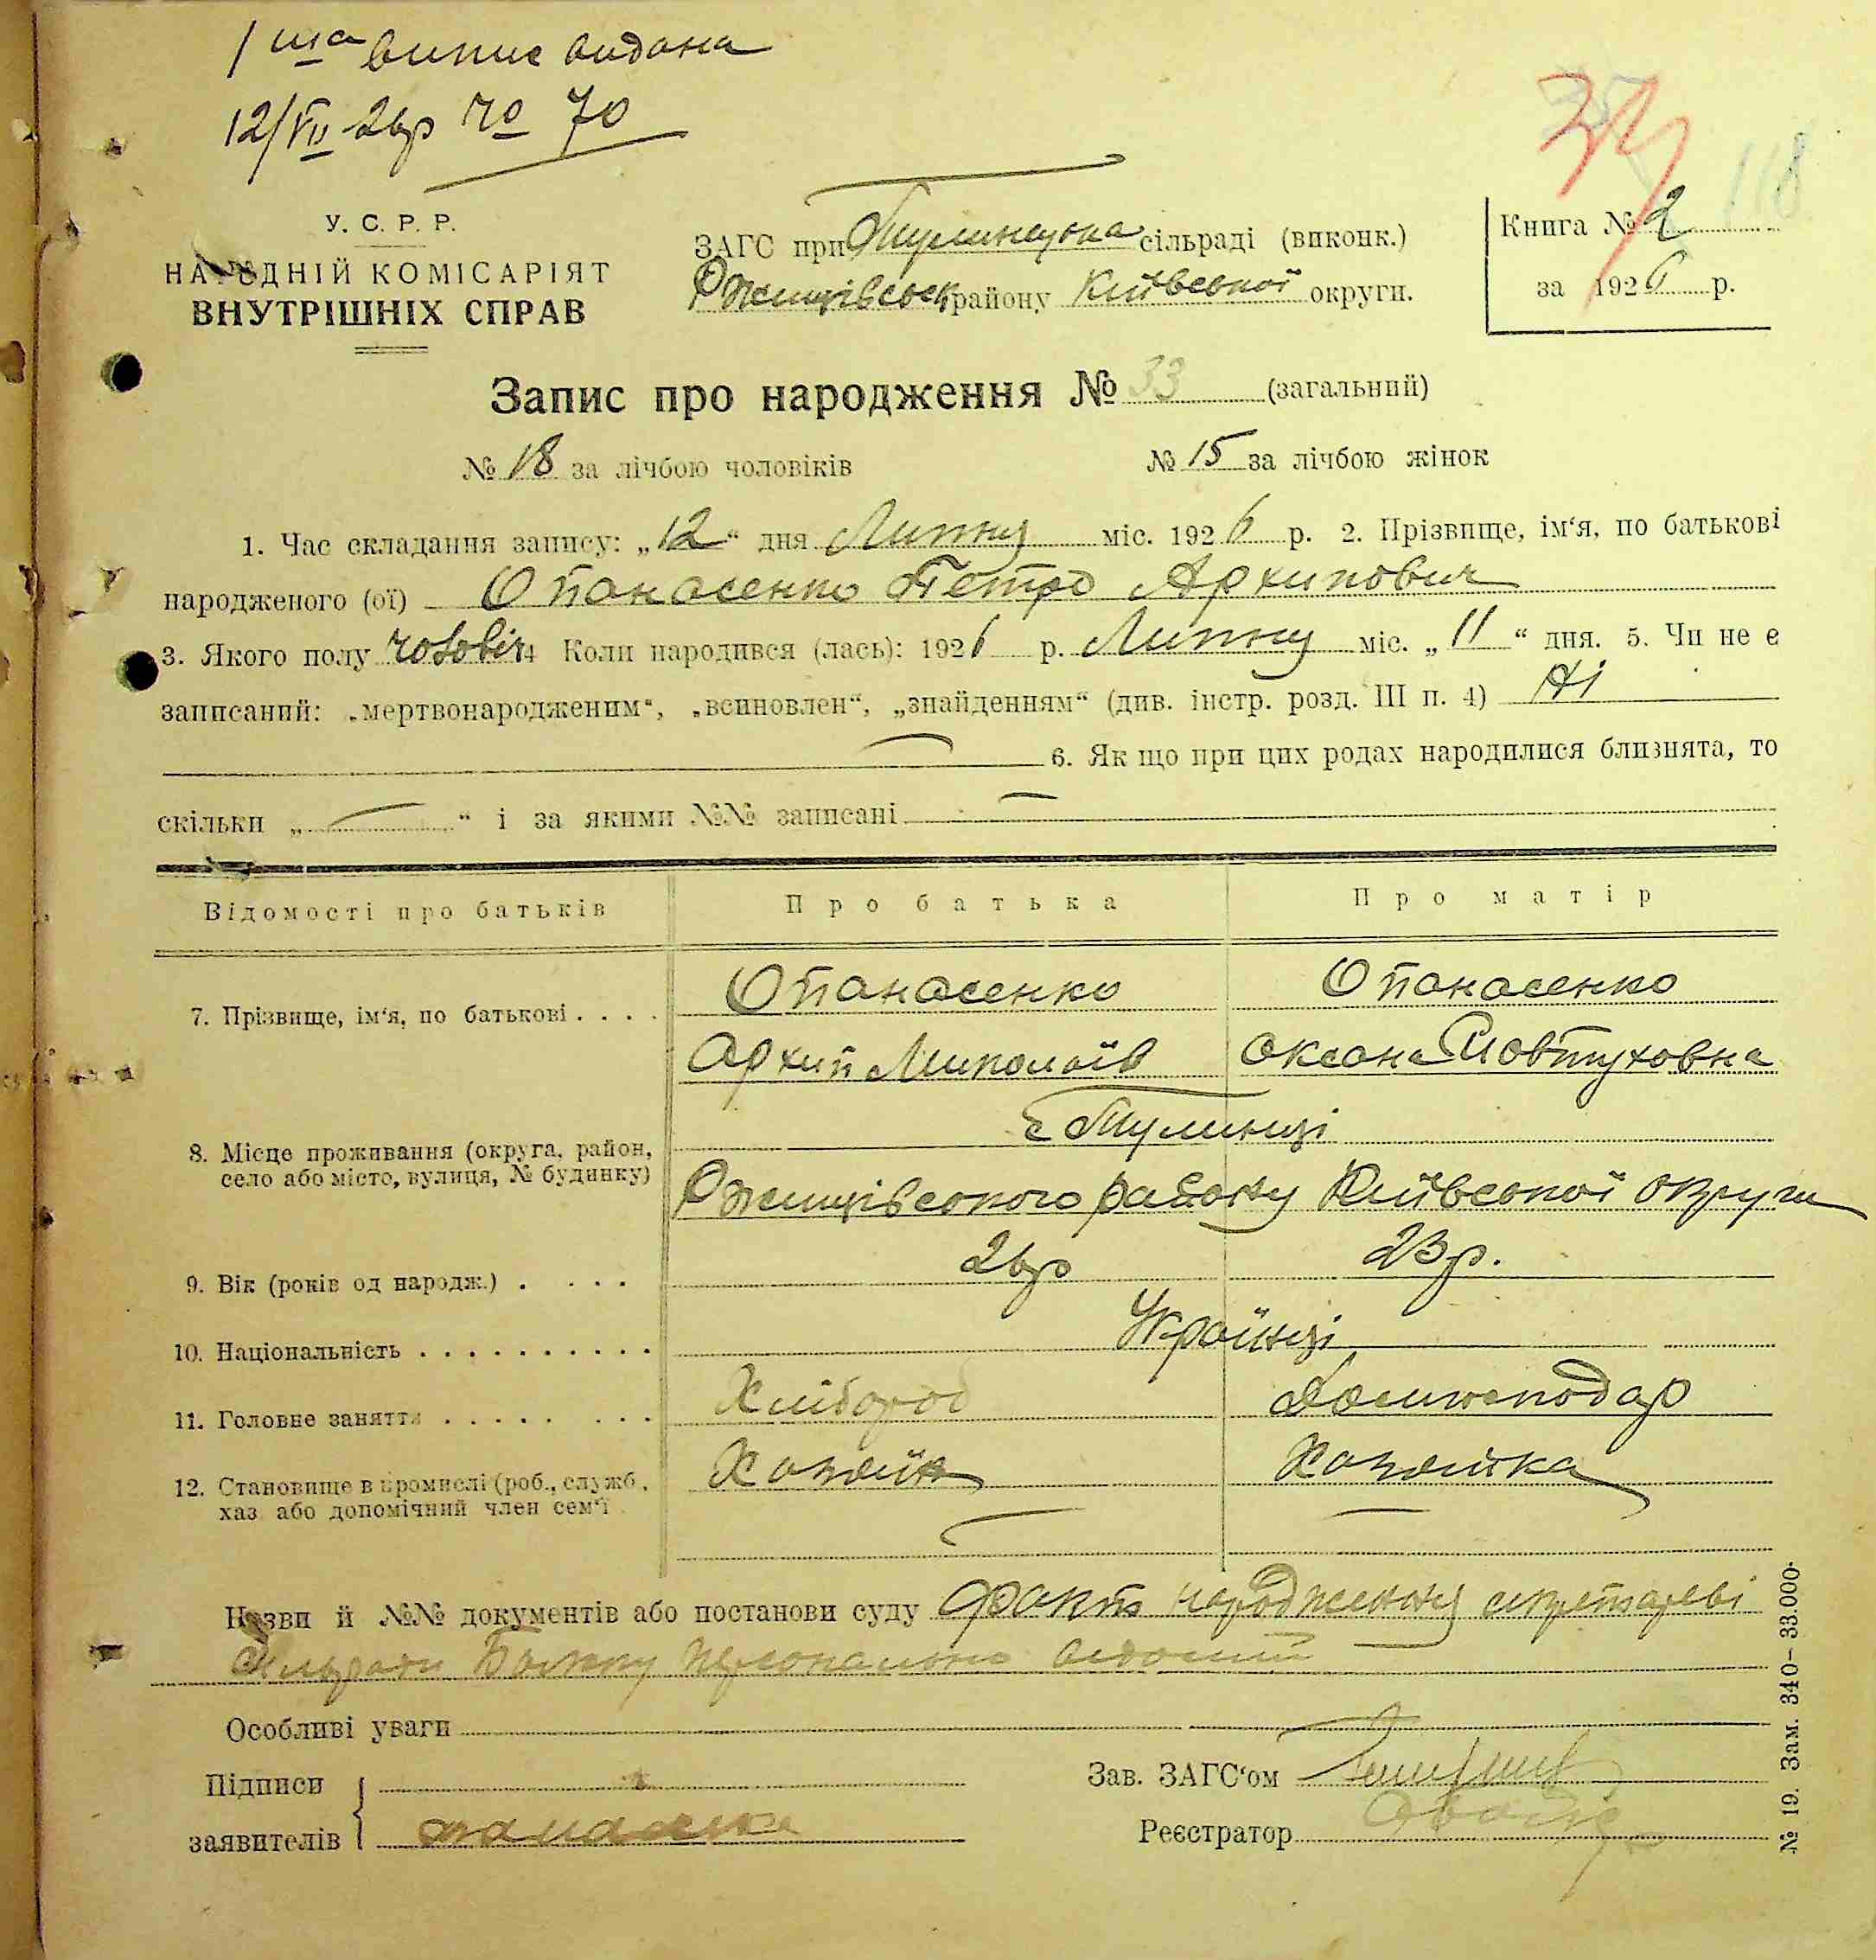 1ша випис видана
12/VII 26р № 70
118
У. С. Р. Р.
НАРОДНІЙ КОМІСАРІЯТ
ВНУТРІШНІХ СПРАВ
ЗАГС при Тулинецька сільраді (виконк.)
Ржищівськ району Київської округи.
Книга № 2
за 1926 р.
Запис про народження № 33 (загальний)
№ 18 за лічбою чоловіків № 15 за лічбою жінок
1. Час складання запису: „12“ дня Липня міс. 1926 р. 2. Прізвище, ім‘я, по батькові
народженого (ої) Опанасенко Петро Архипович
3. Якого полу чоловіч 4 Коли народився (лась): 1926 р. Липня міс. „11“ дня. 5. Чи не є
записаний: „мертвонародженим“, „всиновлен“, „знайденням“ (див. інстр. розд. III п. 4) Ні
6. Як що при цих родах народилися близнята, то
скільки „ — “ і за якими №№ записані —
Відомості про батьків Про батька Про матір
Опанасенко Опанасенко
7. Прізвище, ім‘я, по батькові . . . .
Архип Миколаїв Оксана Явтуховна
с Тулинці
8. Місце проживання (округа, район,
село або місто, вулиця, № будинку)
Ржищівського району Київської округи
9. Вік (років од народж.) . . . . 26р 23р.
10. Національність . . . . . . . . . . Українці
11. Головне заняття . . . . . . . . Хлібороб Домогосподар
12. Становище в промислі (роб., служб., Хозяїн Хозяйка
хаз. або допомічний член сем‘ї
Назви й №№ документів або постанови суду Факт народження секретареві
сільради персонально відомий
Особливі уваги
Підписи
заявителів
Зав. ЗАГС‘ом
Реєстратор
№ 19. Зам. 340–33.000.